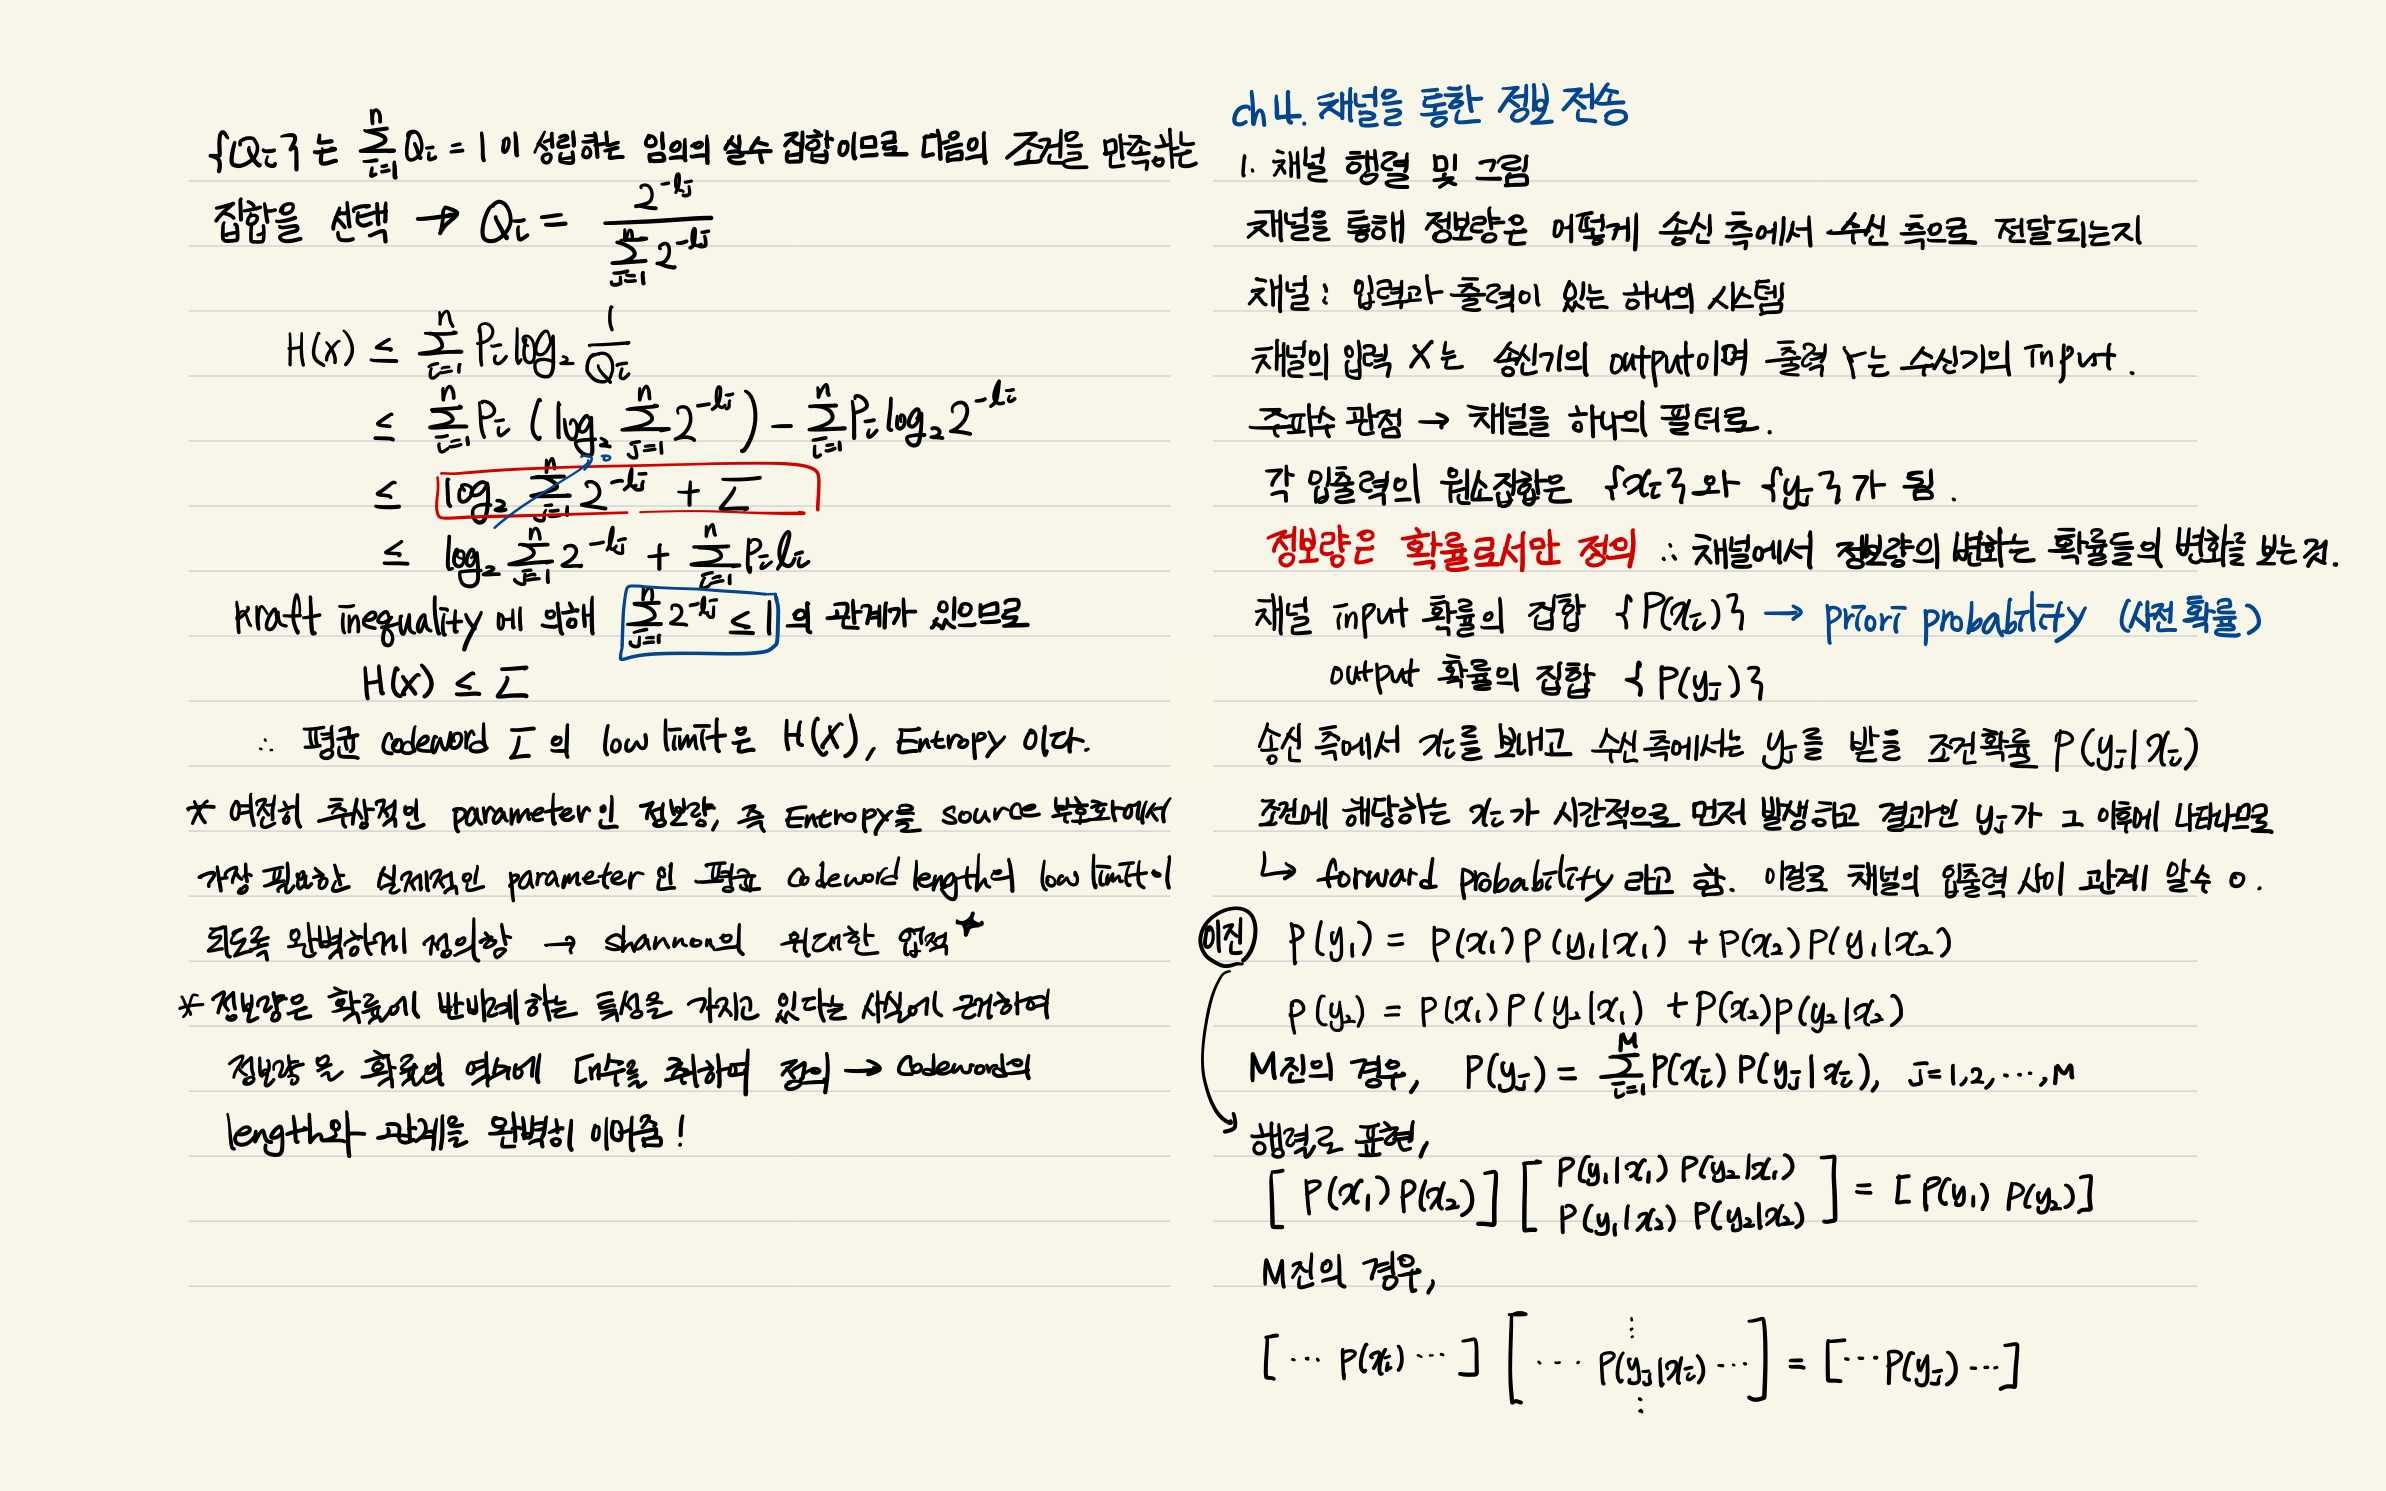 {Qi} 는 n∑i=1 Qi = 1 이 성립하는 임의의 실수 집합이므로 다음의 조건을 만족하는
집합을 선택 → Qi = 2^-lj / n∑j=1 2^-lj
H(x) ≤ n∑i=1 Pi log2 1/Qi
≤ n∑i=1 Pi (log2 n∑j=1 2^-lj) - n∑i=1 Pi log2 2^-li
≤ log2 n∑j=1 2^-lj + L̅
≤ log2 n∑j=1 2^-lj + n∑i=1 Pi li
kraft inequality 에 의해 n∑j=1 2^-lj ≤ 1 의 관계가 있으므로
H(x) ≤ L̅
∴ 평균 codeword L̅ 의 low limit은 H(X), Entropy 이다.
* 여전히 추상적인 parameter인 정보량, 즉 Entropy를 source 부호화에서
가장 필요한 실제적인 parameter 인 평균 codeword length의 low limit이
되도록 완벽하게 정의함 → shannon의 위대한 업적★
* 정보량은 확률에 반비례하는 특성을 가지고 있다는 사실에 근거하여
정보량을 확률의 역수에 대수를 취하며 정의 → codeword의
length와 관계를 완벽히 이어줌!
ch 4. 채널을 통한 정보 전송
1. 채널 행렬 및 그림
채널을 통해 정보량은 어떻게 송신 측에서 수신 측으로 전달되는지
채널: 입력과 출력이 있는 하나의 시스템
채널의 입력 X는 송신기의 output이며 출력 Y는 수신기의 input.
주파수 관점 → 채널을 하나의 필터로.
각 입출력의 원소집합은 {xi}와 {yj}가 됨.
정보량은 확률로서만 정의 ∴ 채널에서 정보량의 변화는 확률들의 변화를 보는 것.
채널 input 확률의 집합 {P(xi)} → priori probability (사전 확률)
output 확률의 집합 {P(yj)}
송신 측에서 xi를 보내고 수신 측에서는 yj를 받을 조건확률 P(yj|xi)
조건에 해당하는 xi가 시간적으로 먼저 발생하고 결과인 yj가 그 이후에 나타나므로
↳ forward probability 라고 함. 이걸로 채널의 입출력 사이 관계 알수 o.
이진 P(y1) = P(x1)P(y1|x1) + P(x2)P(y1|x2)
P(y2) = P(x1)P(y2|x1) + P(x2)P(y2|x2)
M진의 경우, P(yj) = M∑i=1 P(xi) P(yj|xi), j=1,2,⋯,M
행렬로 표현,
[P(x1) P(x2)] [P(y1|x1) P(y2|x1)
P(y1|x2) P(y2|x2)] = [P(y1) P(y2)]
M진의 경우,
[⋯ P(xi) ⋯] [⋯ P(yj|xi) ⋯] = [⋯ P(yj) ⋯]